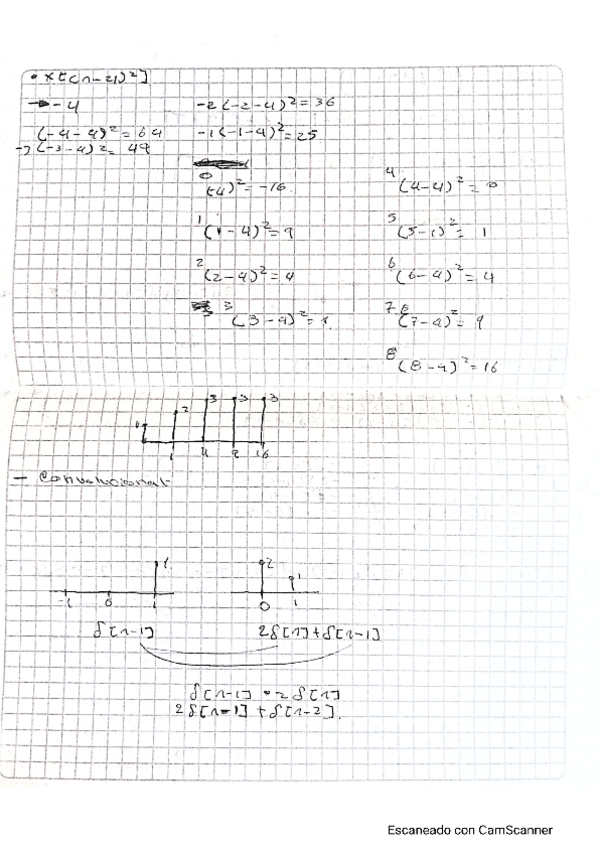 • x[(n-4)²]
→ -4
(-4-4)² = 64
→ (-3-4)² = 49
-2 (-2-4)² = 36
-1 (-1-4)² = 25
0
(-4)² = -16
1 (1-4)² = 9
2 (2-4)² = 4
3 (3-4)² = 1
4 (4-4)² = 0
5 (5-1)² = 1
6 (6-4)² = 4
7 (7-4)² = 9
8 (8-4)² = 16
2 3 3 3
1 4 9 16
- Convolucional
1 2 1
-1 0 1 0 1
δ[n-1] 2δ[n]+δ[n-1]
δ[n-1] • 2δ[n]
2δ[n-1] + δ[n-2].
Escaneado con CamScanner